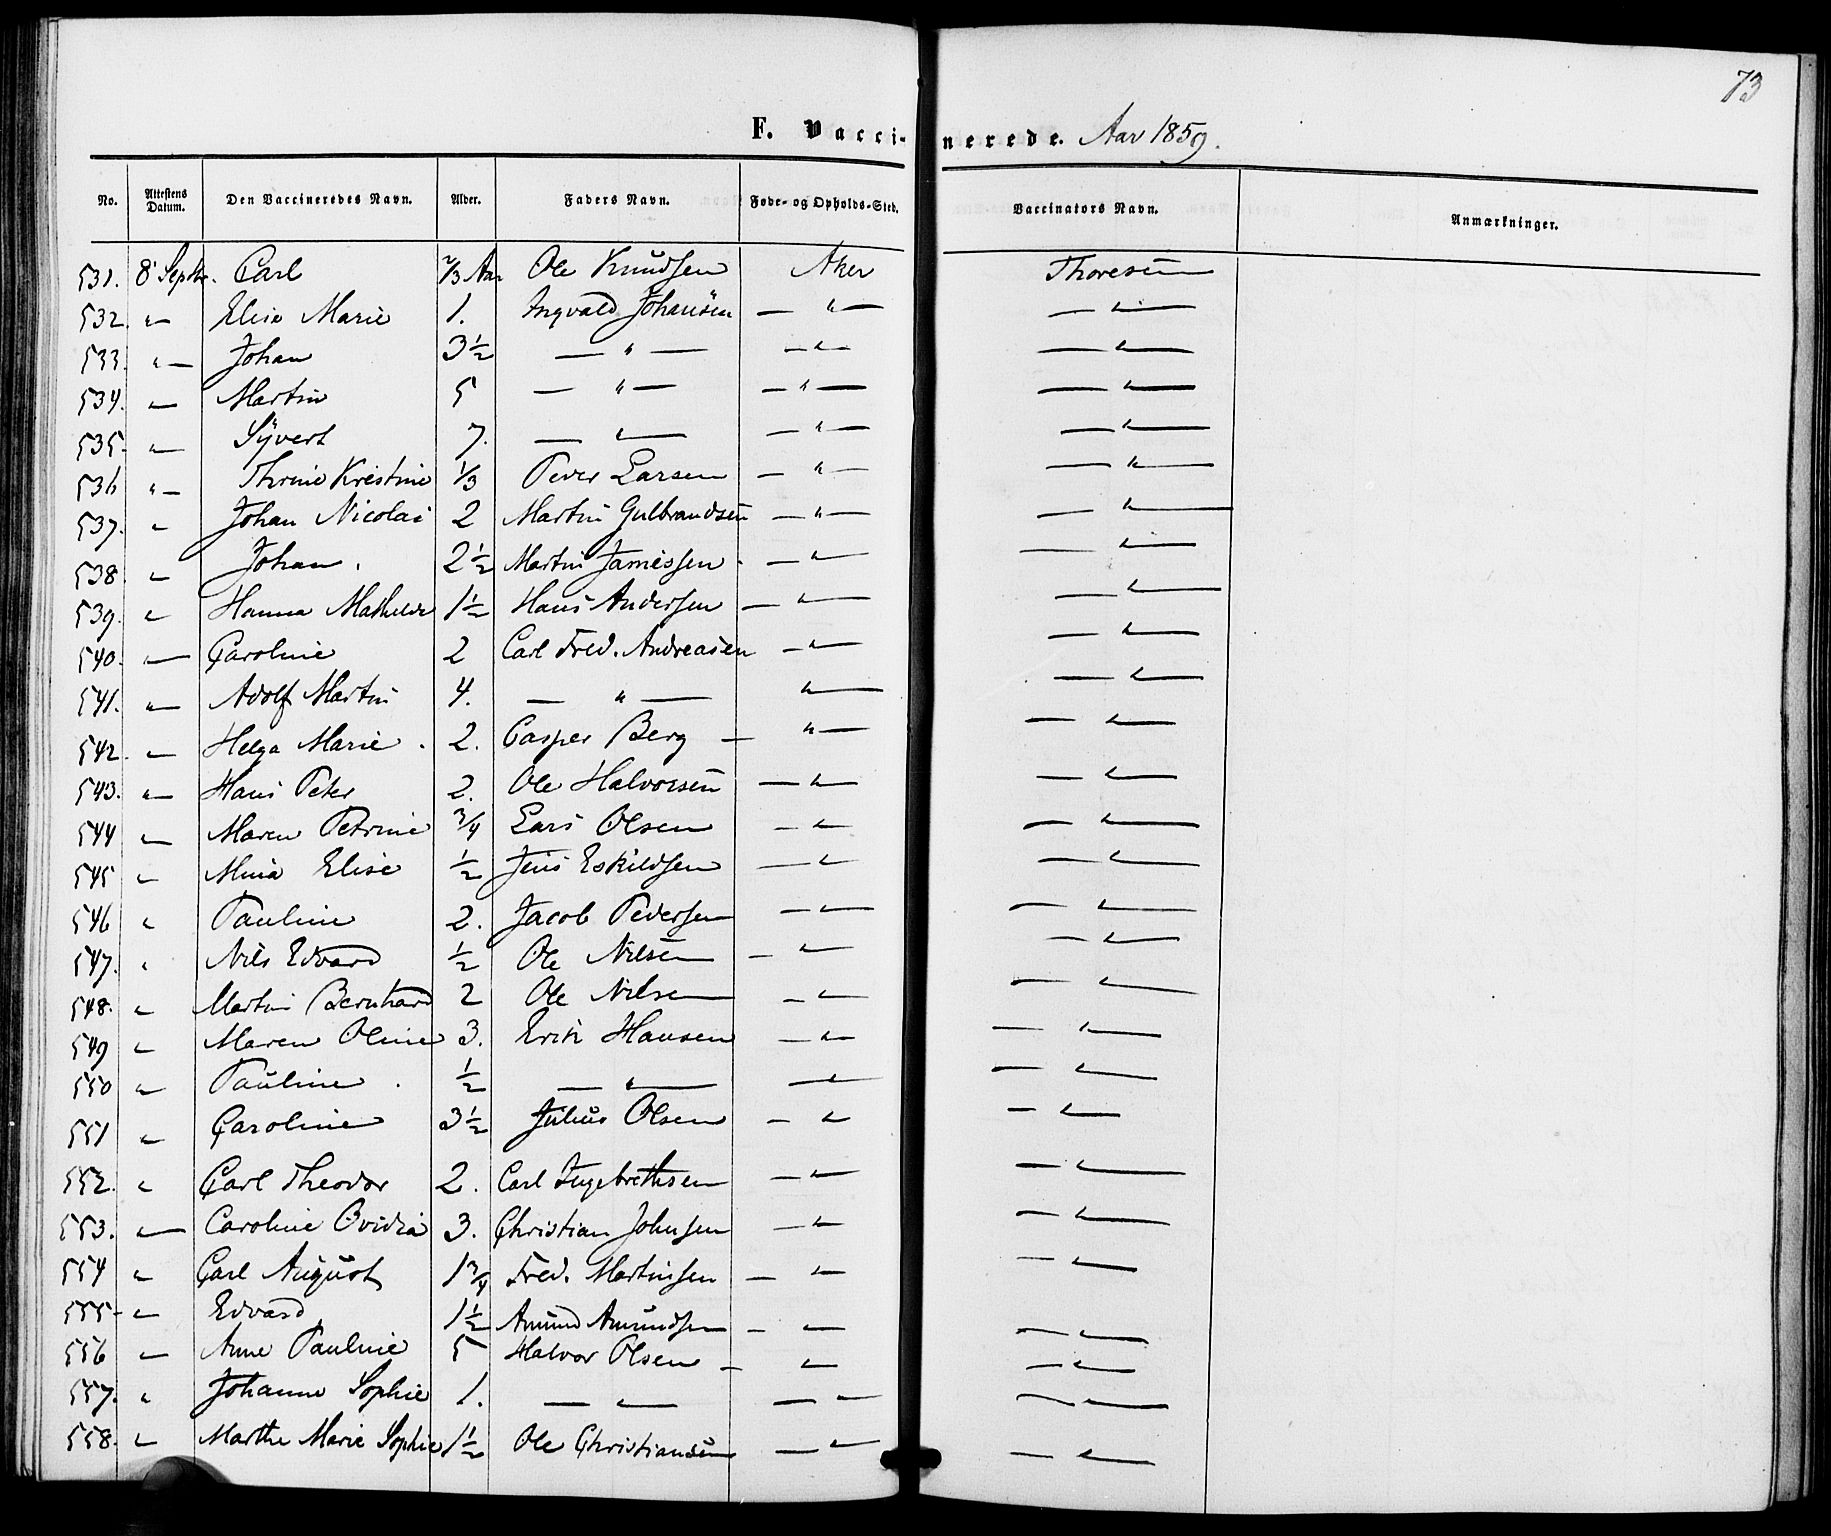 73
F. Vaccinerede. Aar 1859.
No. Attestens Datum. Den Vaccineredes Navn. Alder. Faders Navn. Føde- og Opholds-Sted. Vaccinators Navn. Anmærkninger.
531. 8 Septbr. Carl 2/3 Aar Ole Knudsen Aker Thoresen
532. " — Elise Marie 1. Ingvald Johansen — " — — " —
533. " — Johan 3½ — " — — " — — " —
534. " — Martin 5 — " — — " — — " —
535. " — Syvert 7. — " — — " — — " —
536 " — Thrine Kristine 1/3 Peder Larsen — " — — " —
537. " Johan Nicolai 2 Martin Gulbrandsen — " — — " —
538 " — Johan. 2½ Martin Jamissen — " — — " —
539. " Hanna Mathilde 1½ Hans Andersen — " — — " —
540. " — Caroline 2 Carl Fred. Andreasen — " — — " —
541. " — Adolf Martin 4. — " — " — — " —
542. " — Helga Marie. 2. Casper Berg — " — — " —
543. " — Hans Peter 2. Ole Halvorsen — " — — " —
544 " — Maren Petrine 3/4 Lars Olsen — " — — " —
545 " — Mina Elise ½ Jens Eskildsen — " — — " —
546 " Pauline 2. Jacob Pedersen — " — — " —
547. " Nils Edvard ½ Ole Nilsen — " — — " —
548. " Martin Bernhard 2 Ole Nilsen — " — — " —
549 " Maren Oline 3. Erik Hansen — " — — " —
550 " Pauline. ½ — " — — " — — " —
551 " Caroline 3½ Julius Olsen — " — " —
552. " Carl Theodor 2. Carl Ingebrethsen — " — — " —
553. " — Caroline Ovidia 3. Christian Johnsen — " — — " —
554 " Carl August 1¾ Fred. Martinsen — " — — " —
555 " Edvard 1½ Amund Amundsen — " — — " —
556 " — Anne Pauline 5 Halvor Olsen — " — — " —
557. " Johanne Sophie 1. — " — — " — — " —
558. " Marthe Marie Sophie 1½ Ole Christiansen — " — — " —